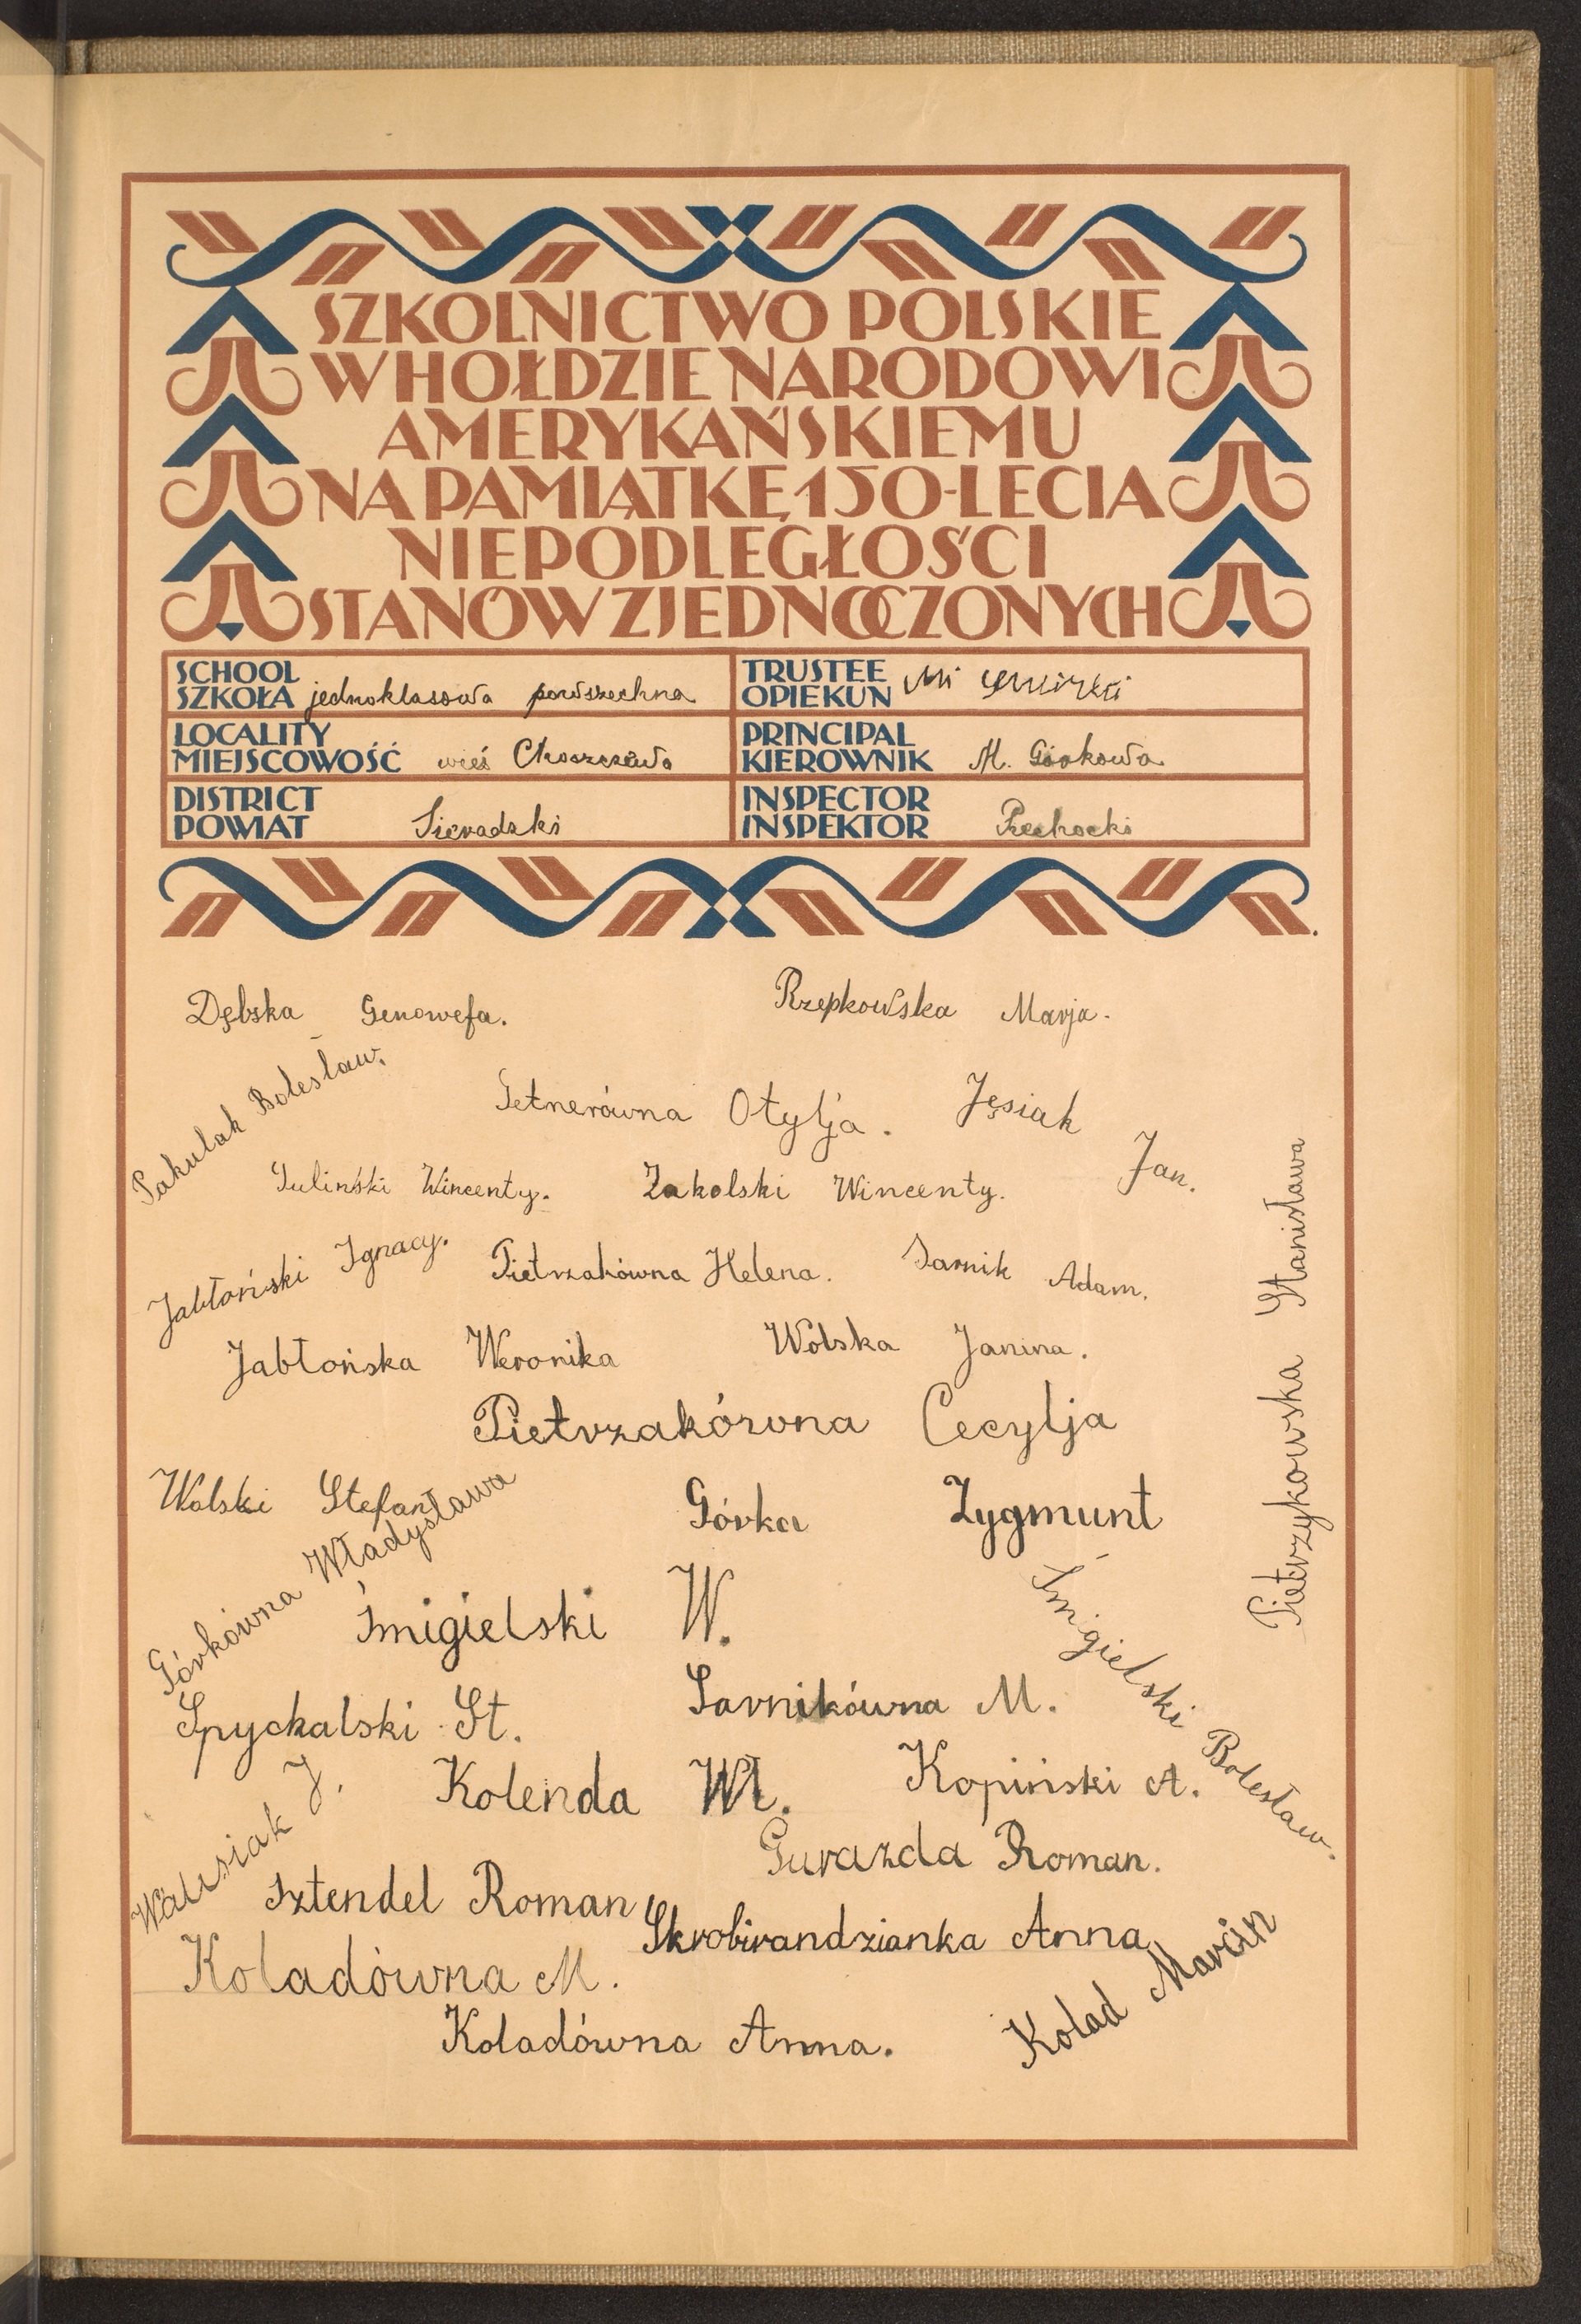 SZKOLNICTWO POLSKIE
W HOŁDZIE NARODOWI
AMERYKAŃSKIEMU
NA PAMIĄTKĘ 150-LECIA
NIEPODLEGŁOŚCI
STANÓW ZJEDNOCZONYCH
SCHOOL
SZKOŁA jednoklasowa powszechna
TRUSTEE
OPIEKUN
LOCALITY
MIEJSCOWOŚĆ wieś
PRINCIPAL
KIEROWNIK M. Górkowa
DISTRICT
POWIAT Sieradzki
INSPECTOR
INSPEKTOR Piechocki
Dębska Genowefa.
Rzepkowska Marja.
Pakulak Bolesław.
Getnerówna Otylja.
Jęsiak Jan.
Guliński Wincenty.
Zakolski Wincenty.
Jabłoński Ignacy.
Pietrzakówna Helena.
Sarnik Adam.
Pietrzykowska Stanisława
Jabłońska Weronika
Wolska Janina.
Pietrzakówna Cecylja
Wolski Stefan
Górka Zygmunt
Górkówna Władysława
Śmigielski W.
Śmigielski Bolesław.
Spychalski St.
Sarnikówna M.
Walusiak J.
Kolenda Wł.
Kopiński A.
Gurazda Roman.
Sztendel Roman
Skrobirandzianka Anna
Koladówna M.
Kolad Marcin
Koladówna Anna.